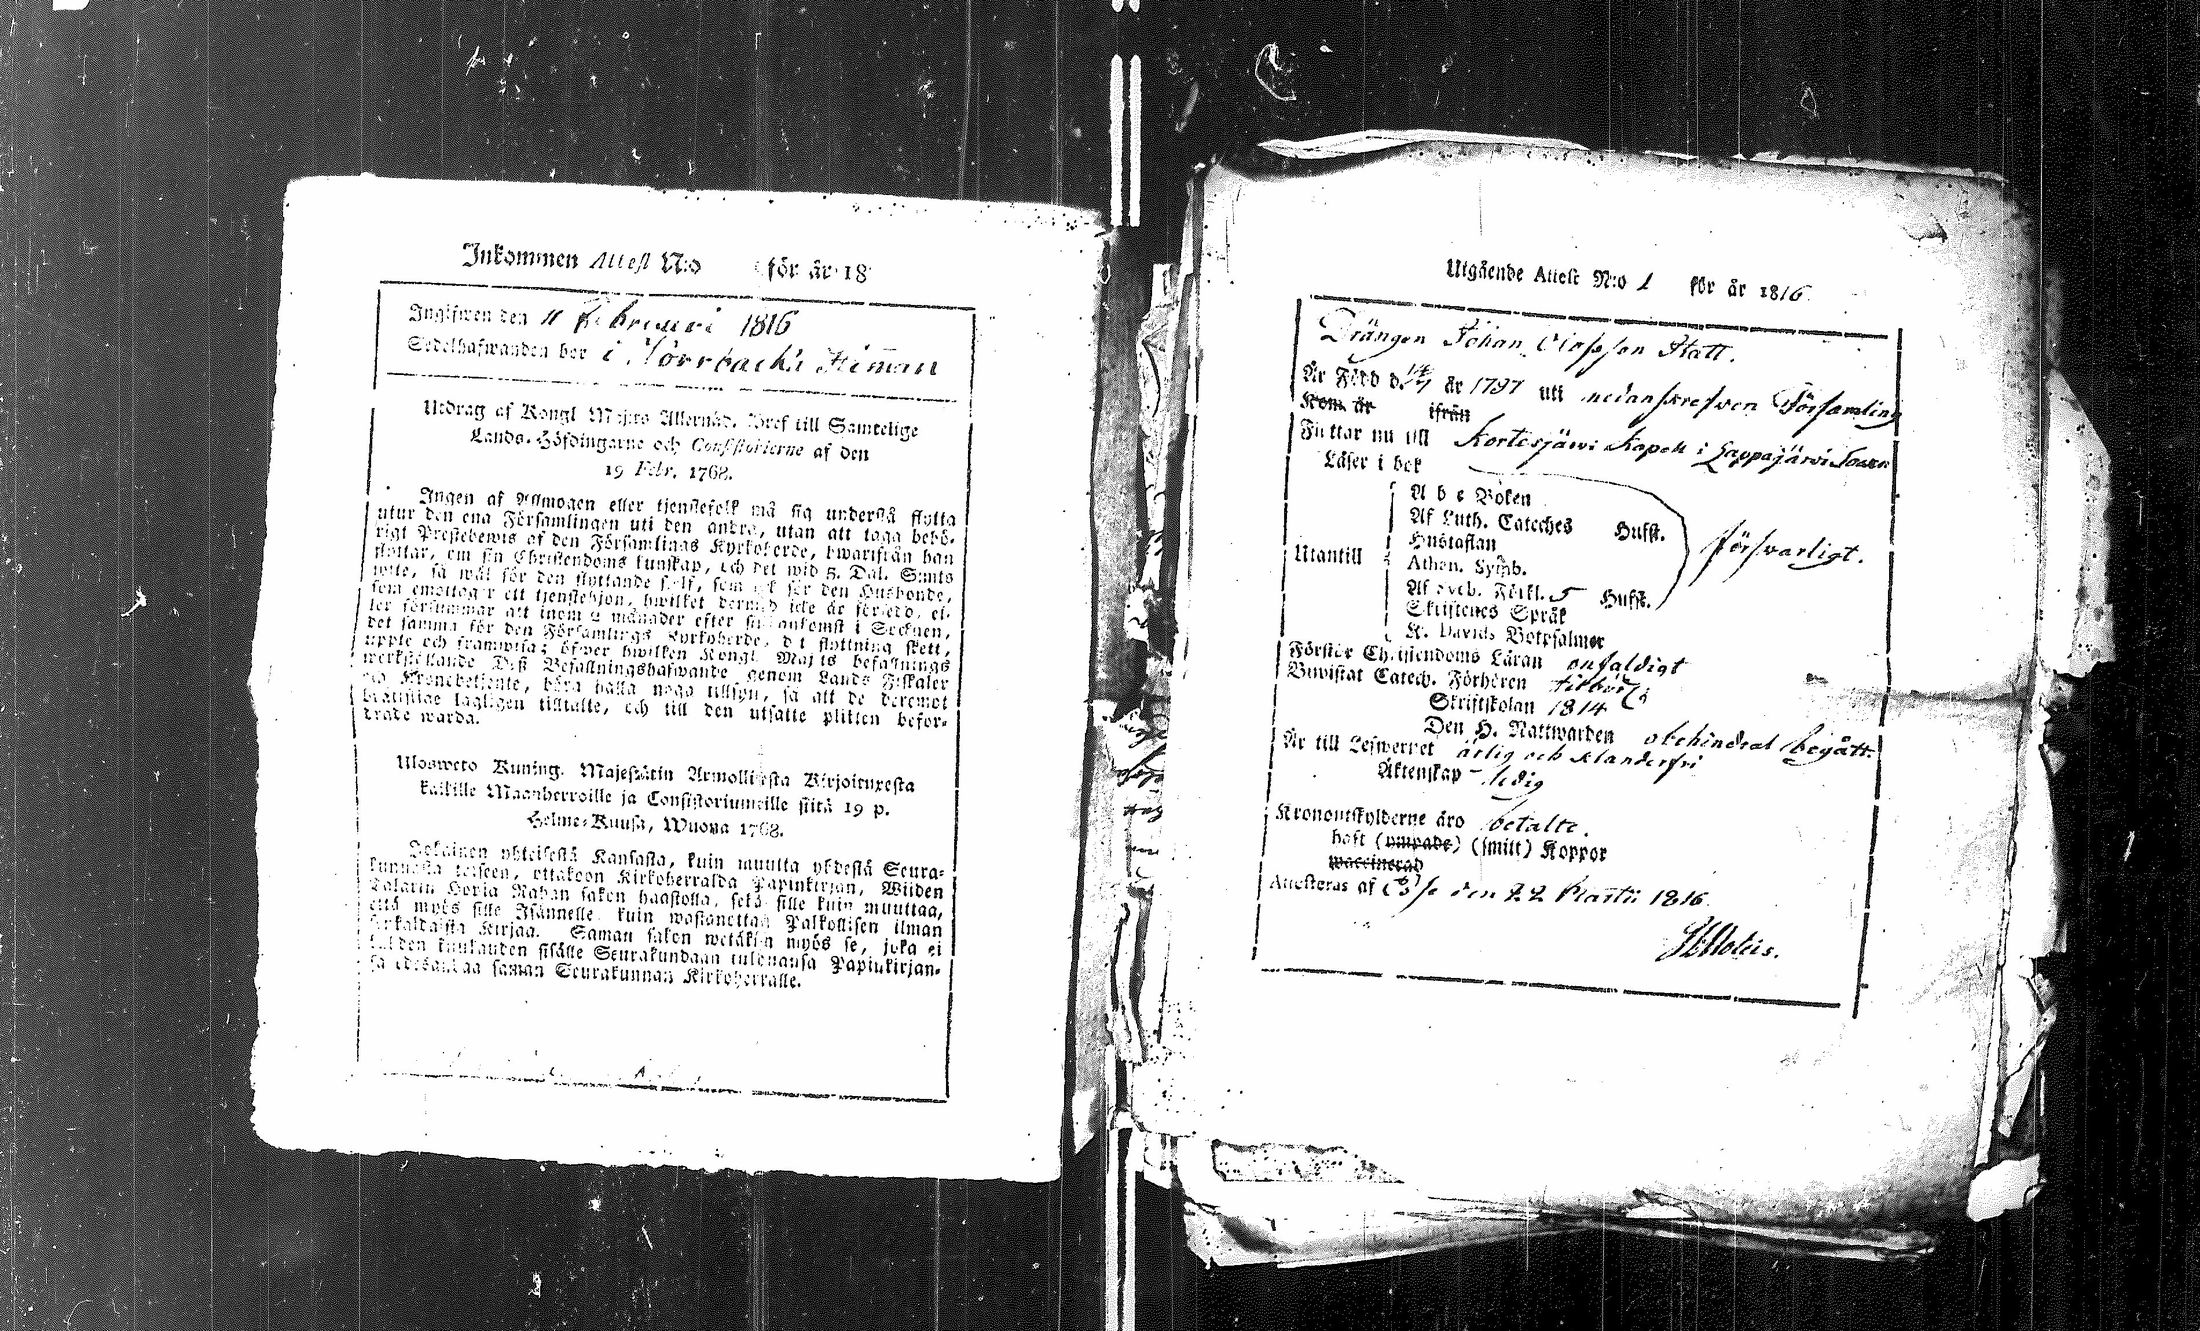 Inkommen Attest N:o för år 18
Ingifwen den 11 Februari 1816
Sedelhafwanden bor i Norrbacka Hemman
Utdrag af Kongl Maj:ts Allernåd. Bref till Samtelige
Lands-Höfdingarne och Consistorierne af den
19 Febr. 1768.
Ingen af Allmogen eller tjenstefolk må sig understå flytta
utur den ena Församlingen uti den andra, utan att taga behö-
rigt Prestebewis af den Församlings Kyrkoherde, hwarifrån han
flyttar, om sin Christendoms kunskap, och det wid 5. Dal. S:mts
wite, så wäl för den flyttande sjelf, som ock för den Husbonde,
som emottager ett tjenstehjon, hwilket dermed icke är försedt, el-
ler försummar att inom 2 månader efter sin ankomst i Socknen,
det samma för den Församlings Kyrkoherde, dit flyttning skett,
upte och framwisa; öfwer hwilken Kongl. Maj:ts befallnings
werkställande Deß Befallningshafwande genom Lands Fiskaler
och Kronobetjente, böra hålla noga tillsyn, så att de deremot
brottslige lagligen tilltalte, och till den utsatte plikten befor-
drade warda.
Ulosweto Kuning. Majestätin Armollisesta Kirjoituxesta
kaikille Maanherroille ja Consistoriumeille siitä 19 p.
Helme-Kuusa, Wuona 1768.
Jokainen yhteisestä Kansasta, kuin muutta yhdestä Seura-
kunnasta toiseen, ottakoon Kirkoherralda Papinkirjan, Wiiden
Talarin Hopia Rahan sakon haastolla, sekä sille kuin muuttaa,
että myös sille Isännelle kuin wastanottaa Palkollisen ilman
senkaldaista Kirjaa. Saman sakon wetäkön myös se, joka ei
kahden kuukauden sisälle Seurakundaan tulduansa Papinkirjan-
sa edesantaa saman Seurakunnan Kirkoherralle.
Utgående Attest N:o 1 för år 1816
Drängen Johan Olofsson Statt.
Är Född d. 14/7 år 1797 uti nedanskrefwen Församling
Kom år ifrån
Flyttar nu till Kortesjärwi Kapell i Lappajärwi Sockn
Läser i bok
A b c Boken
Af Luth. Cateches Husst.
Hustaflan
Utantill Athan. Symb. försvarligt.
Af Sveb. Förkl. 5 Husst.
Skriftenes Språk
K. Davids Botpsalmer
Förstår Christendoms Läran enfaldigt
Biwistat Catech. Förhören
Skriftskolan 1814
Den H. Nattwarden obehindrat begått.
Är till Lefwernet ärlig och klanderfri
Äktenskap - ledig
Kronoutskylderne äro betalte.
haft (ympade) (smitt) Koppor
waccinerad
Attesteras af den 22 Martii 1816.